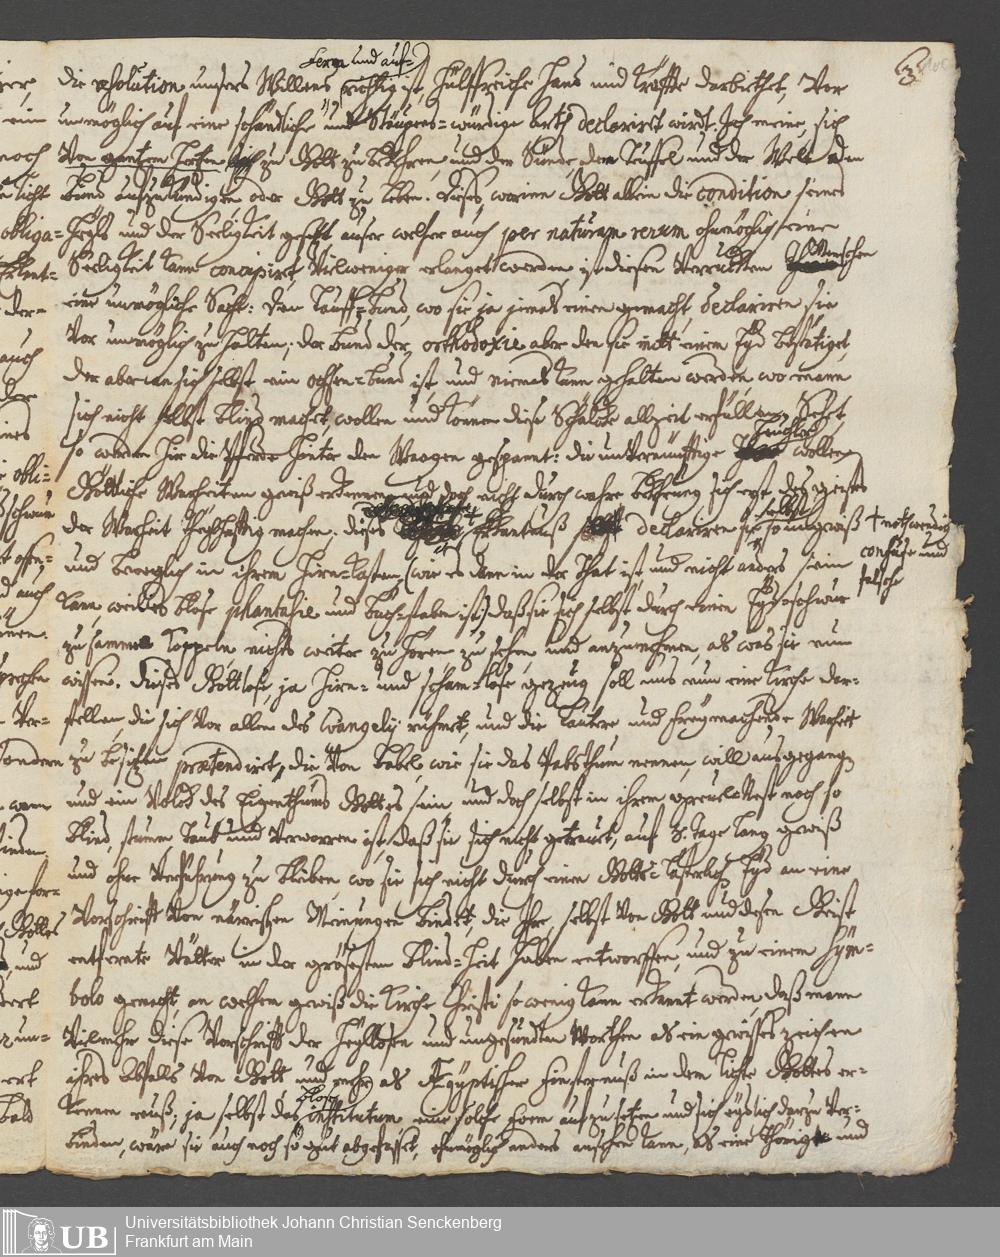 ferm und auf-
die resolution unsers Willens richtig ist, hülffreiche Hand und kräffte darbiethet, Vor
unmöglich auf eine schändliche und Stäupens-würdige arth declariret wird. Ich meine, sich
Von gantzem Hertzen zu Gott zu bekehren, und der Sünde, dem Teuffel und der Welt den
bund aufzukündigen oder Gott zu leben. Dieses, worinn Gott allein die condition seines
Heyls und der Seeligkeit gesetzt auser welcher auch per naturam rerum ohnmöchig eine
Seeligkeit kann concipiret, Vilweniger erlanget werden, ist diesen Verruckten Menschen
eine unmögliche Sache: den Tauff-bund, wo sie ja jemals einen gemacht, declariren sie
Vor unmöglich zu halten; der bund der orthodoxie aber den sie mit einem Eyd bestätiget,
der aber an sich selbst ein Ochsen-bund ist, und niemals kann gehalten werden, wo mann
sich nicht selbst blind machet, wollen und können diese Schälcke allzeit erfüllen. Seht,
so werden hir die Pferde hinter den Waagen gespannt: die unVernünfftige Heuchler wollen
Göttliche Warheiten gewiß erkennen, und doch nicht durch wahre bekehrung sich erst des geistes
der Warheit theilhafftig machen. dieses Erkäntnuß declariren sie selbst so ungewiß
† nothwendig
confuse und
falsche
und beweglich in ihrem Hirn-kasten, (wie es dann in der That ist, und nicht anders sein
kann, weil es blose phantasie und buch-staben ist) daß sie sich selbst durch einen Eydschwur
zusammen koppeln, nichts weiter zu hören, zu sehen und anzunehmen, als was sie nun
wissen. Dieses Gottlose, ja Hirn- und scham-lose gezeug soll uns nun eine Kirche dar-
stellen, die sich Vor allen des Evangelij rühmet, und die lautere und freymachende Warheit
zu besitzen prætendiret, die Von Babel, wie sie das Pabsthum nennen, will ausgegangen
und ein Volck des Eigenthums Gottes sein und doch selbst in ihrem greuel-Nest noch so
blind, stumm, taub und verworren ist, daß sie sich nicht getrauet, auf 8. Tage lang gewiß
und ohne Verführung zu bleiben, wo sie sich nicht durch einen Gotts-lästerlich Eyd an eine
Vorschrifft Von närrischen Meinungen bindet, die Ihre, selbst Von Gott und desen Geist
entfernte Vätter in der grösesten blind-heit haben entworffen, und zu einem Sym-
bolo gemacht, an welchem gewiß die Kirche Christi so wenig kann erkannt werden, daß mann
Vilmehr diese Vorschrifft der Heyllosen und ungesunden Worthen als ein gewisses zeichen
ihres Abfalls Von Gott und mehr als Ægyptischer finsternuß in dem lichte Gottes er-
kennen muß, ja selbst das blose institutum eine solche Form aufzusetzen und sich eydlich darzu Ver-
binden, wäre sie auch noch so gut abgefasset, ohnmöglich anders ansehen kann, als eine thörigte und
Universitätsbibliothek Johann Christian Senckenberg
Frankfurt am Main
UB